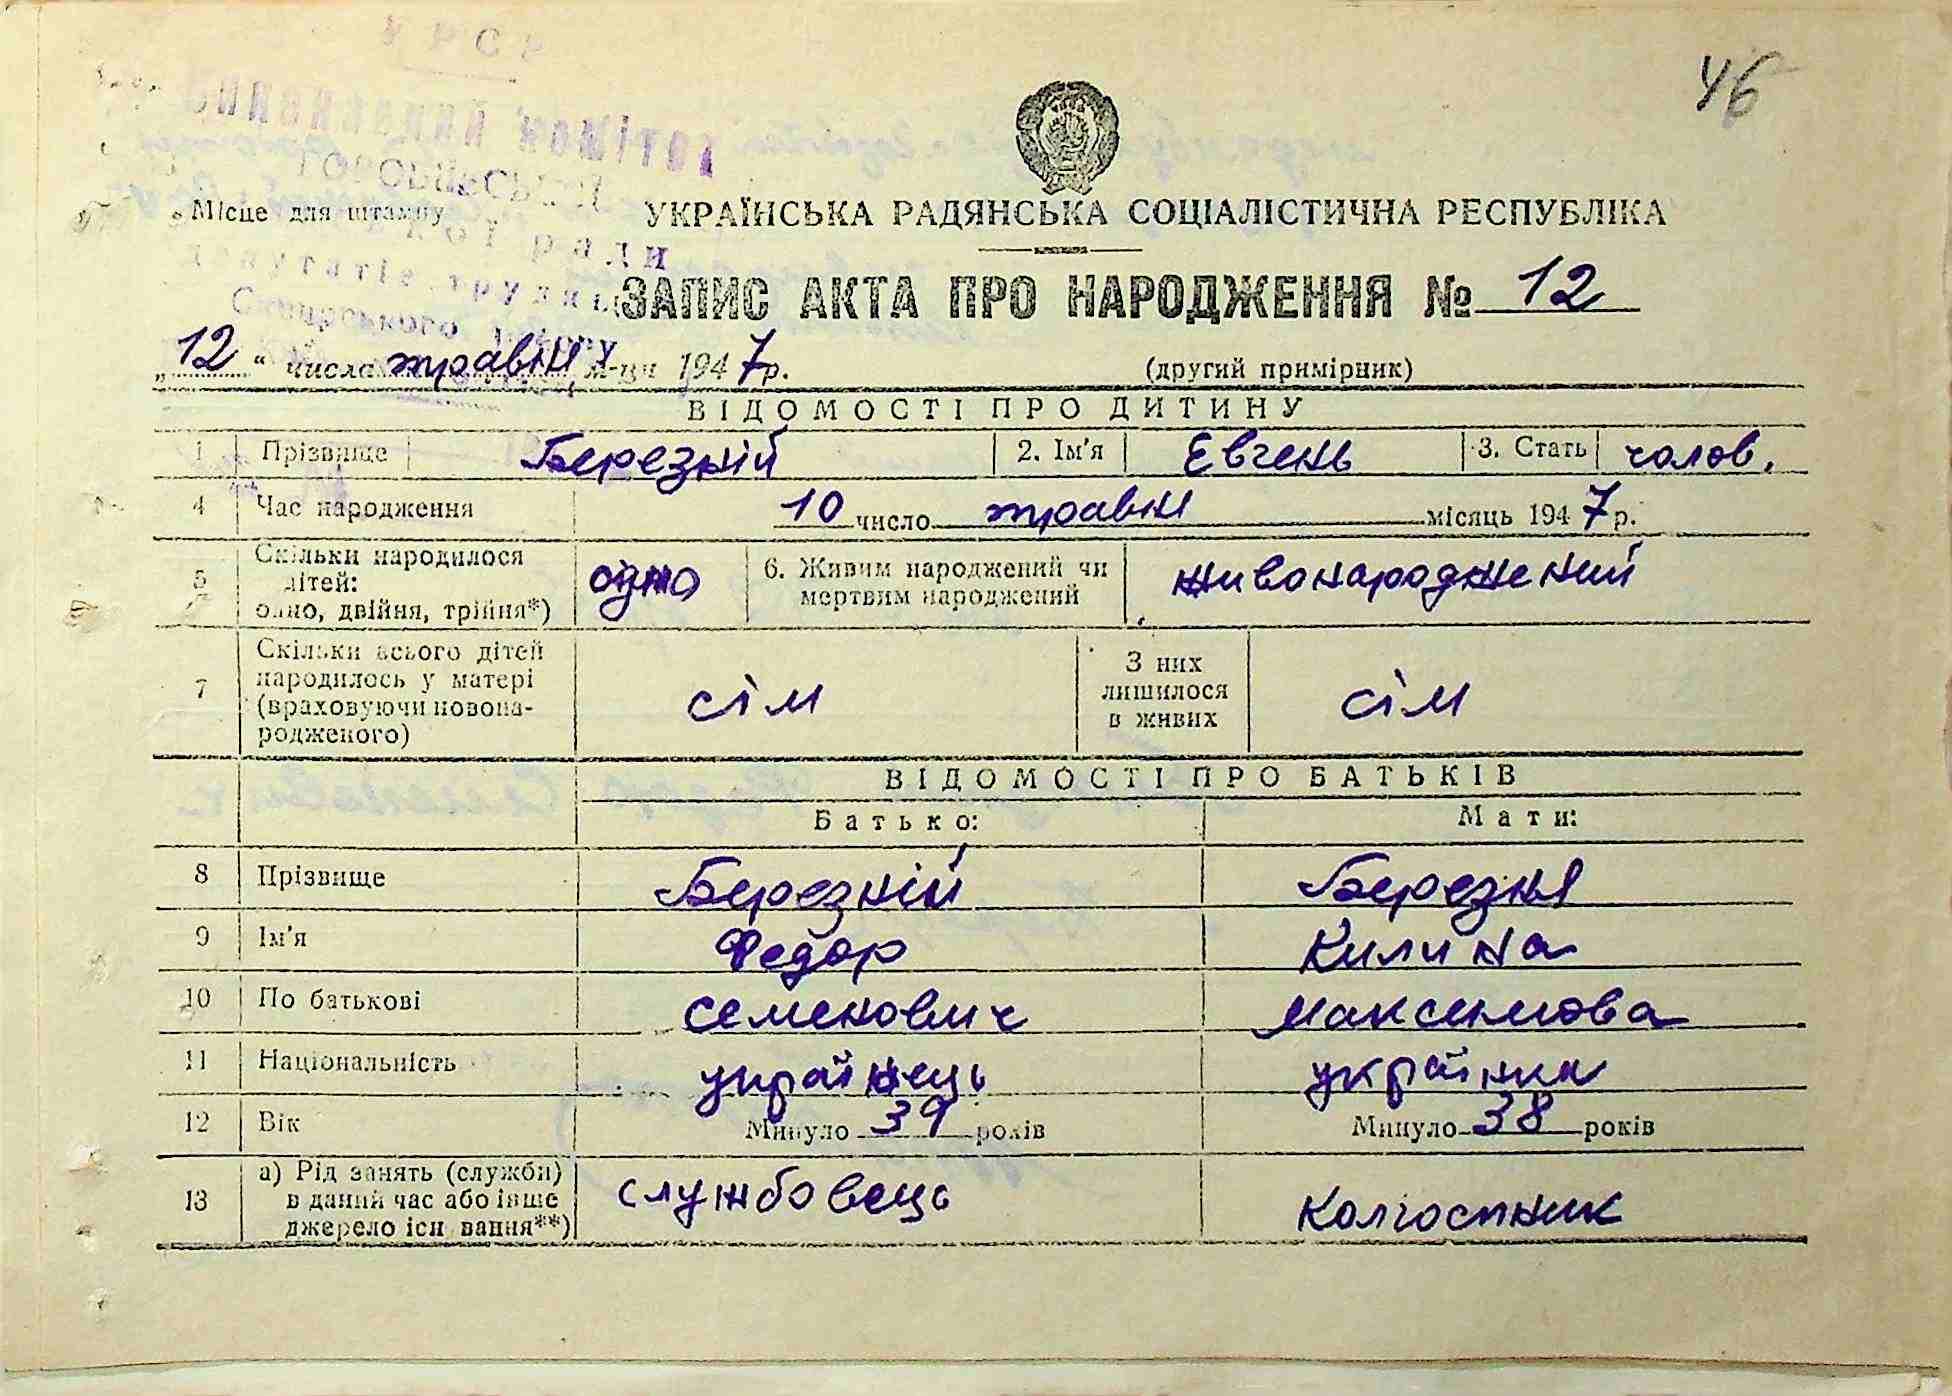 УРСР
46
виконавчий комітет
Місце для штампу
УКРАЇНСЬКА РАДЯНСЬКА СОЦІАЛІСТИЧНА РЕСПУБЛІКА
ради
депутатів трудящ
ЗАПИС АКТА ПРО НАРОДЖЕННЯ № 12
Сквирського
„12“ числа травня м-ця 1947р.
(другий примірник)
ВІДОМОСТІ ПРО ДИТИНУ
1 Прізвище Березній 2. Ім'я Евгень 3. Стать чолов.
4 Час народження 10 число травня місяць 1947р.
5 Скільки народилося дітей: одно, двійня, трійня*) одно 6. Живим народжений чи мертвим народжений живонароджений
7 Скільки всього дітей народилось у матері (враховуючи новонародженого) сім З них лишилося в живих сім
ВІДОМОСТІ ПРО БАТЬКІВ
Батько: Мати:
8 Прізвище Березній Березня
9 Ім'я Федор Килина
10 По батькові Семенович Максимова
11 Національність українець українка
12 Вік Минуло 39 років Минуло 38 років
13 а) Рід занять (служби) в даний час або інше джерело існування**) службовець колгоспник